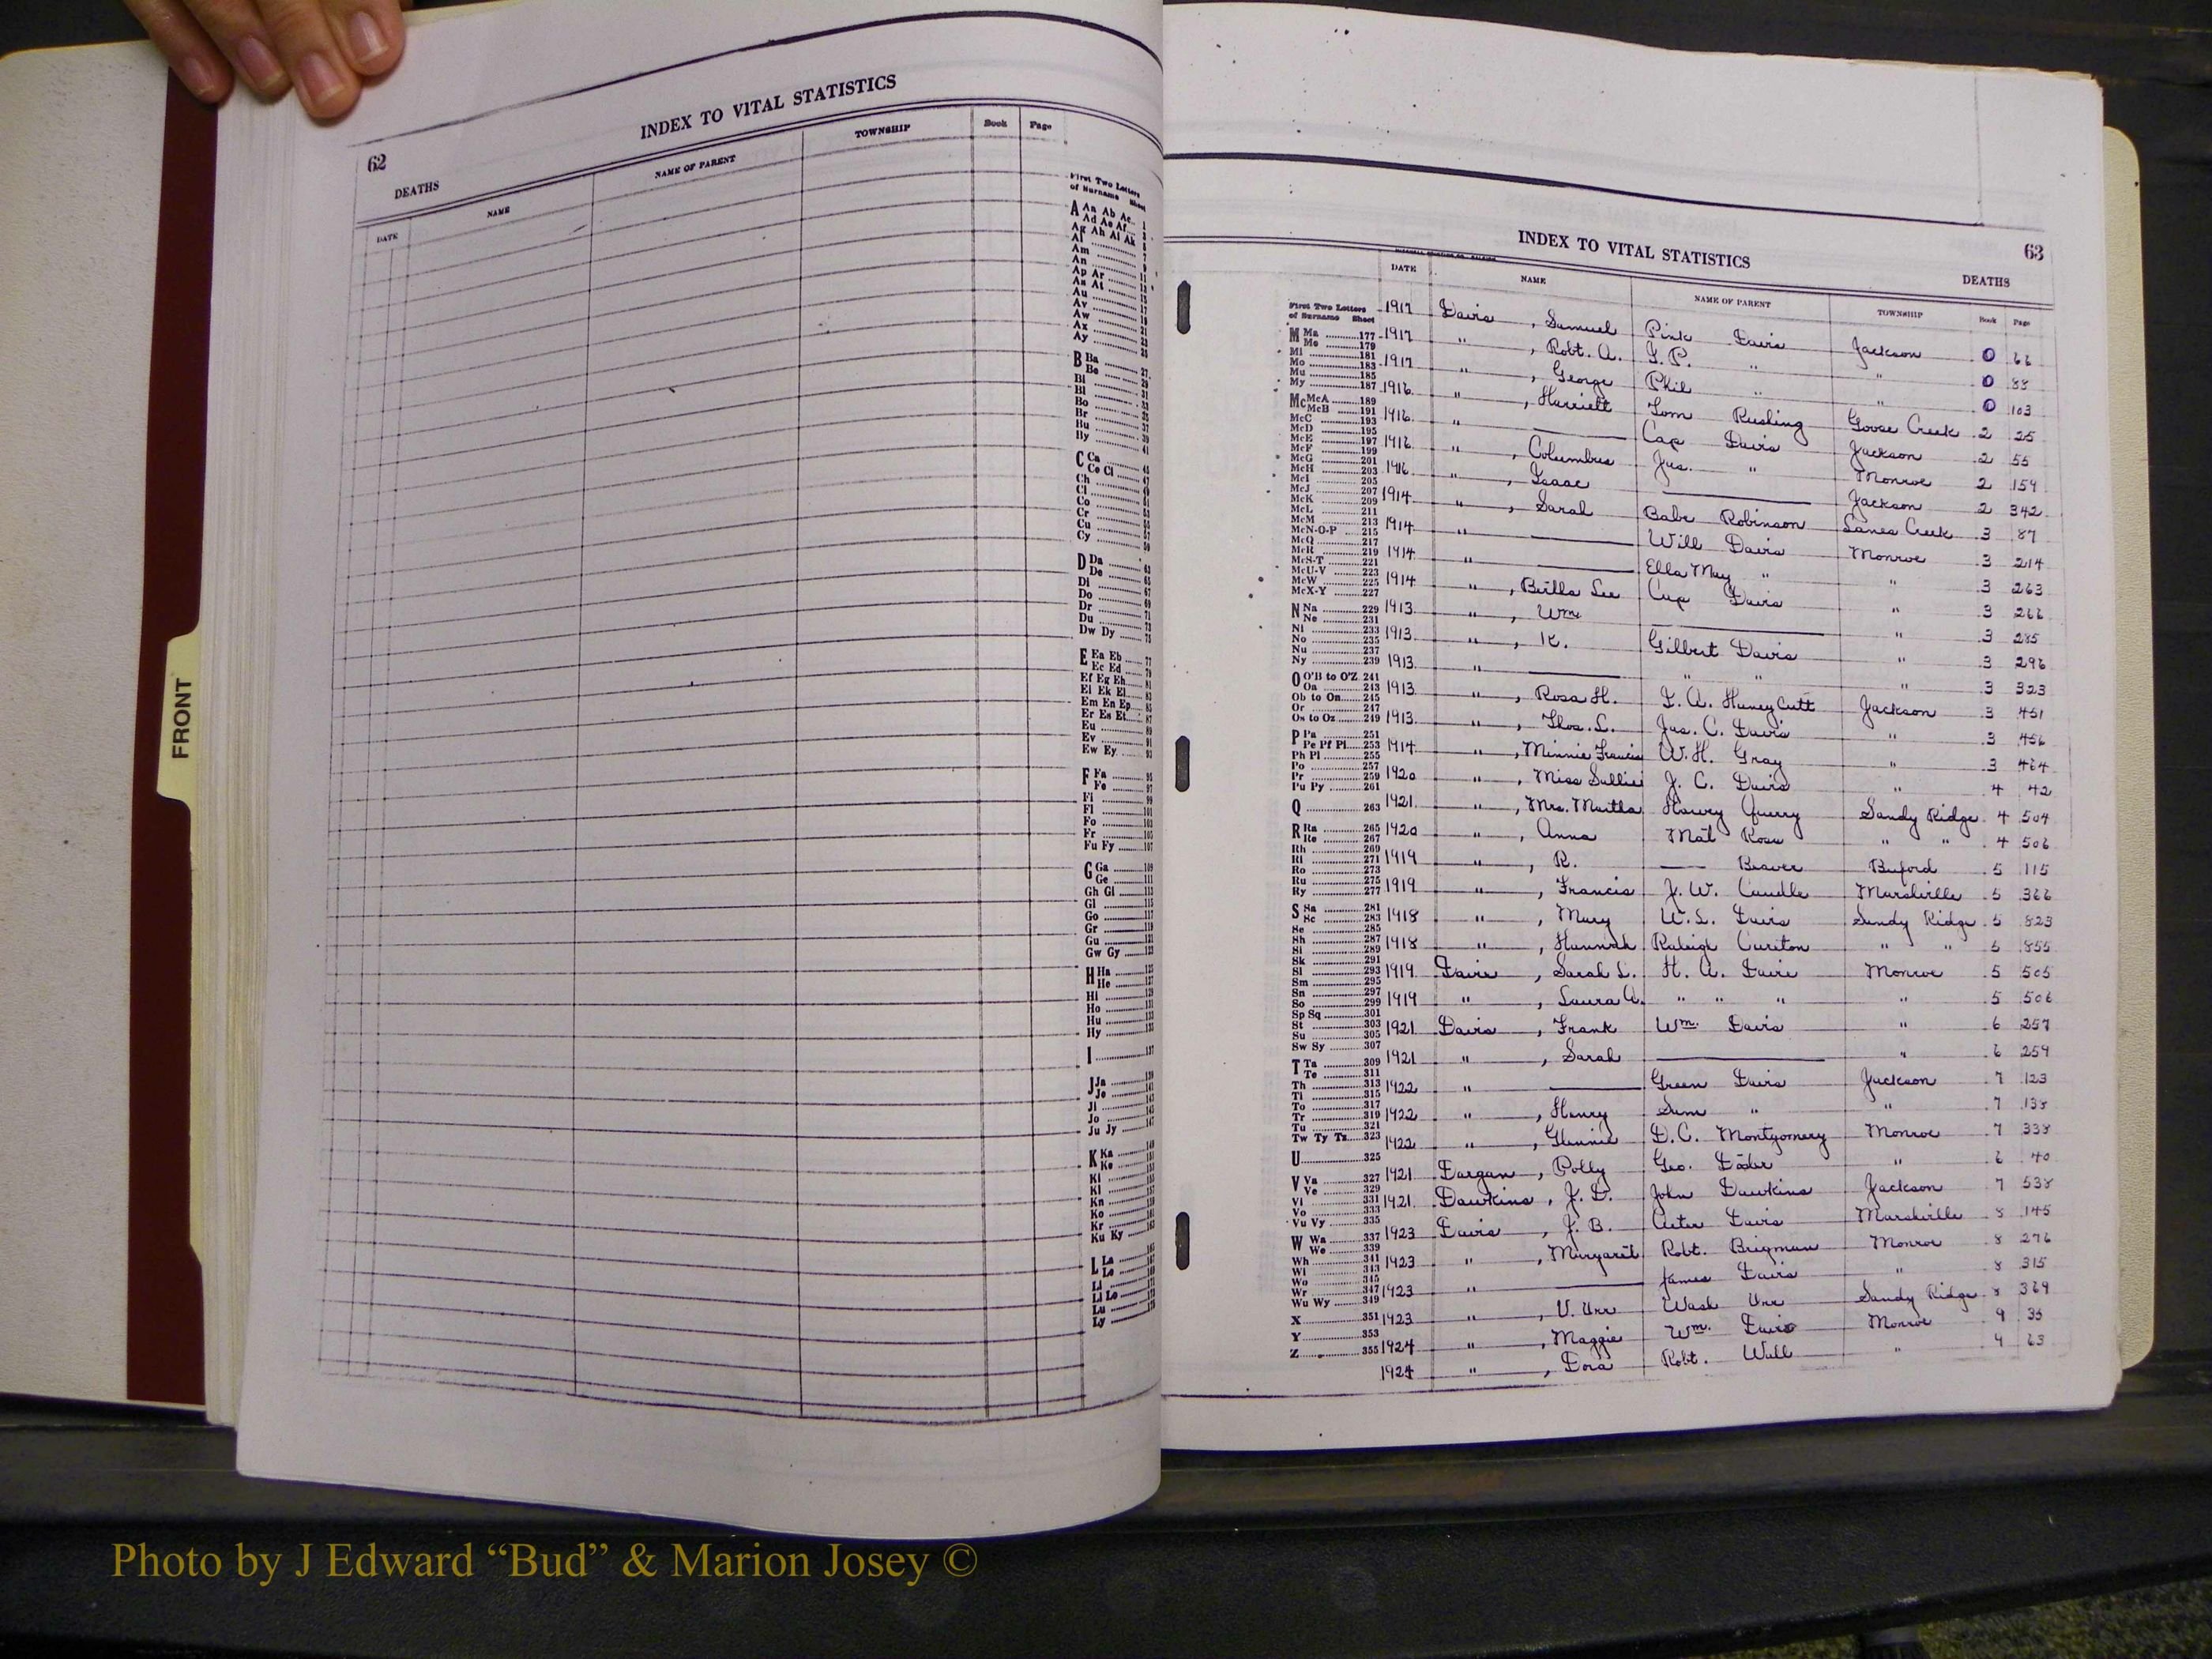 62
INDEX TO VITAL STATISTICS
DEATHS
DATE NAME NAME OF PARENT TOWNSHIP Book Page
First Two Letters
of Surname Sheet
A Aa Ab Ac
Ad Ae Af
Ag Ah Ai Ak
Al
Am
An
Ap Ar
As At
Au
Av
Aw
Ax
Ay
B Ba
Be
Bi
Bl
Bo
Br
Bu
By
C Ca
Ce Ci
Ch
Cl
Co
Cr
Cu
Cy
D Da
De
Di
Do
Dr
Du
Dw Dy
E Ea Eb
Ec Ed
Ef Eg Eh
Ei Ek El
Em En Ep
Er Es Et
Eu
Ev
Ew Ey
F Fa
Fe
Fi
Fl
Fo
Fr
Fu Fy
G Ga
Ge
Gh Gi
Gl
Go
Gr
Gu
Gw Gy
H Ha
He
Hi
Ho
Hu
Hy
I
J Ja
Je
Ji
Jo
Ju Jy
K Ka
Ke
Ki
Kl
Kn
Ko
Kr
Ku Ky
L La
Le
Li
Ll Lo
Lu
Ly
FRONT
INDEX TO VITAL STATISTICS
63
DEATHS
DATE NAME NAME OF PARENT TOWNSHIP Book Page
First Two Letters
of Surname Sheet
M Ma 177
Me 179
Mi 181
Mo 183
Mu 185
My 187
Mc McA 189
McB 191
McC 193
McD 195
McE 197
McF 199
McG 201
McH 203
McI 205
McJ 207
McK 209
McL 211
McM 213
McN-O-P 215
McQ 217
McR 219
McS-T 221
McU-V 223
McW 225
McX-Y 227
N Na 229
Ne 231
Ni 233
No 235
Nu 237
Ny 239
O O'B to O'Z 241
Oa 243
Ob to On 245
Or 247
Os to Oz 249
P Pa 251
Pe Pf Pi 253
Ph Pl 255
Po 257
Pr 259
Pu Py 261
Q 263
R Ra 265
Re 267
Rh 269
Ri 271
Ro 273
Ru 275
Ry 277
S Sa 281
Sc 283
Se 285
Sh 287
Si 289
Sk 291
Sl 293
Sm 295
Sn 297
So 299
Sp Sq 301
St 303
Su 305
Sw Sy 307
T Ta 309
Te 311
Th 313
Ti 315
To 317
Tr 319
Tu 321
Tw Ty Tz 323
U 325
V Va 327
Ve 329
Vi 331
Vo 333
Vu Vy 335
W Wa 337
We 339
Wh 341
Wi 343
Wo 345
Wr 347
Wu Wy 349
X 351
Y 353
Z 355
1917 Davis, Samuel Pink Davis Jackson 0 66
1917 " , Robt. A. G. P. " " 0 88
1917 " , George Phil " " 0 103
1916 " , Harriett Tom Rushing Goose Creek 2 25
1916 " Cap Davis Jackson 2 55
1916 " , Columbus Jas. " Monroe 2 159
1916 " , Isaac Jackson 2 342
1914 " , Sarah Babe Robinson Lanes Creek 3 87
1914 " Will Davis Monroe 3 214
1914 " Ella May " " 3 263
1914 " , Beilla Lee Cap Davis " 3 266
1913 " , Wm. " 3 285
1913 " , K. Gilbert Davis " 3 296
1913 " " " " 3 323
1913 " , Rosa H. Huneycutt Jackson 3 451
1913 " , Thos. L. Jas. C. Davis " 3 456
1914 " , Minnie Francis W. H. Gray " 3 464
1920 " , Miss Sallie J. C. Davis " 4 42
1921 " , Mrs. Martha Query Sandy Ridge 4 504
1920 " , Anna Mat Rose " " 4 506
1919 " , R. Beaver Buford 5 115
1919 " , Francis J. W. Caudle Marshville 5 366
1918 " , Mary W. L. Davis Sandy Ridge 5 823
1918 " , Hannah Raleigh Cureton " " 5 855
1919 , Sarah L. H. A. Monroe 5 505
1919 " , Laura A. " " " " 5 506
1921 Davis, Frank Wm. Davis " 6 257
1921 " , Sarah " 6 259
1922 " Green Davis Jackson 7 123
1922 " , Henry Sam " " 7 138
1922 " , Glennie D. C. Montgomery Monroe 7 338
1921 Dargan, Polly Geo. " 6 40
1921 Dawkins, J. D. John Dawkins Jackson 7 538
1923 Davis, J. B. Davis Marshville 8 145
1923 " , Margaret Robt. Brigman Monroe 8 276
1923 " James Davis " 8 315
1923 " , U. Urr Wash Urr Sandy Ridge 8 369
1924 " , Maggie Wm. Davis Monroe 9 35
1924 " , Dora Robt. Wall " 9 63
Photo by J Edward “Bud” & Marion Josey ©